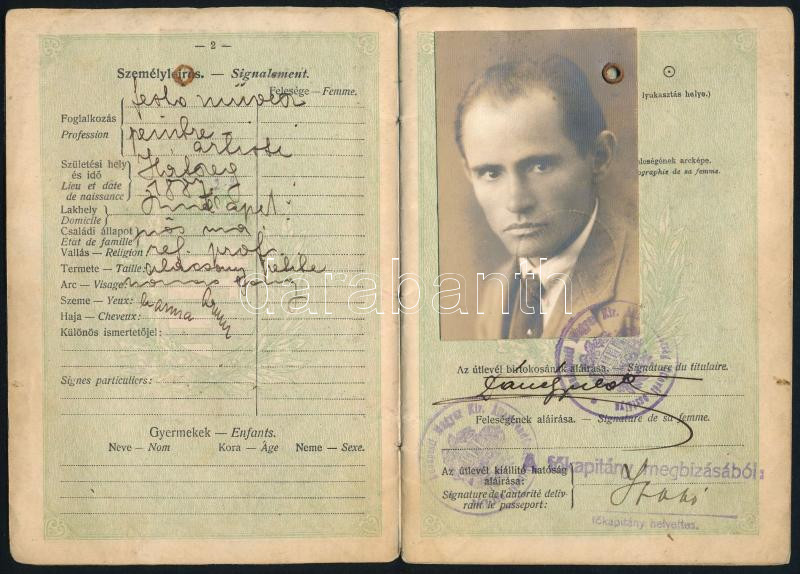 — 2 —
Személyleírás. — Signalement.
Felesége — Femme.
festőművész
Foglalkozás
Profession
peintre-
artiste
Születési hely
és idő
Hátszeg
Lieu et date
de naissance
1887
Lakhely
Domicile
Családi állapot
nős
Etat de famille
Vallás — Religion
ref. prof.
Termete — Taille:
alacsony
Arc — Visage:
Szeme — Yeux:
barna
Haja — Cheveux:
Különös ismertetőjel:
Signes particuliers:
Gyermekek — Enfants.
Neve — Nom Kora — Âge Neme — Sexe.
lyukasztás helye.)
leségének arcképe.
ographie de sa femme.
Az útlevél birtokosának aláírása. — Signature du titulaire.
Feleségének aláírása. — Signature de sa femme.
A főkapitány megbizásából:
Az útlevél kiállító hatóság
aláírása:
Signature de l'autorité déliv-
rant le passeport:
Szabó
főkapitány helyettes.
darabanth